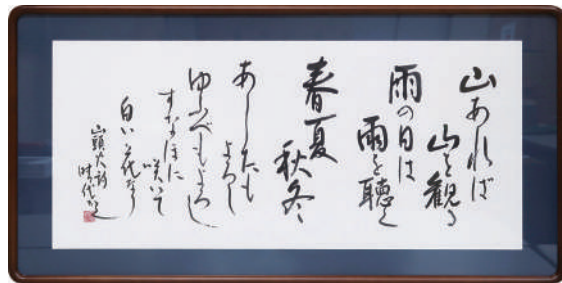 山あれば
山を観る
雨の日は
雨を聴く
春夏
秋冬
あしたも
よろし
ゆふべもよろし
すなほに
咲いて
白い花なり
山頭火詩